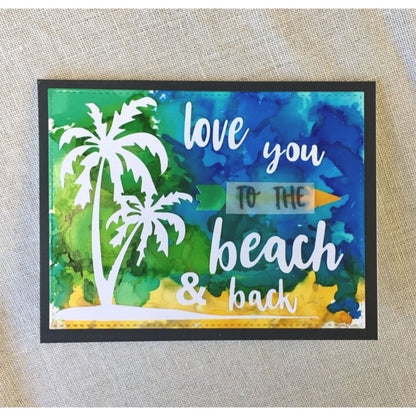 love you
TO THE
beach
& back